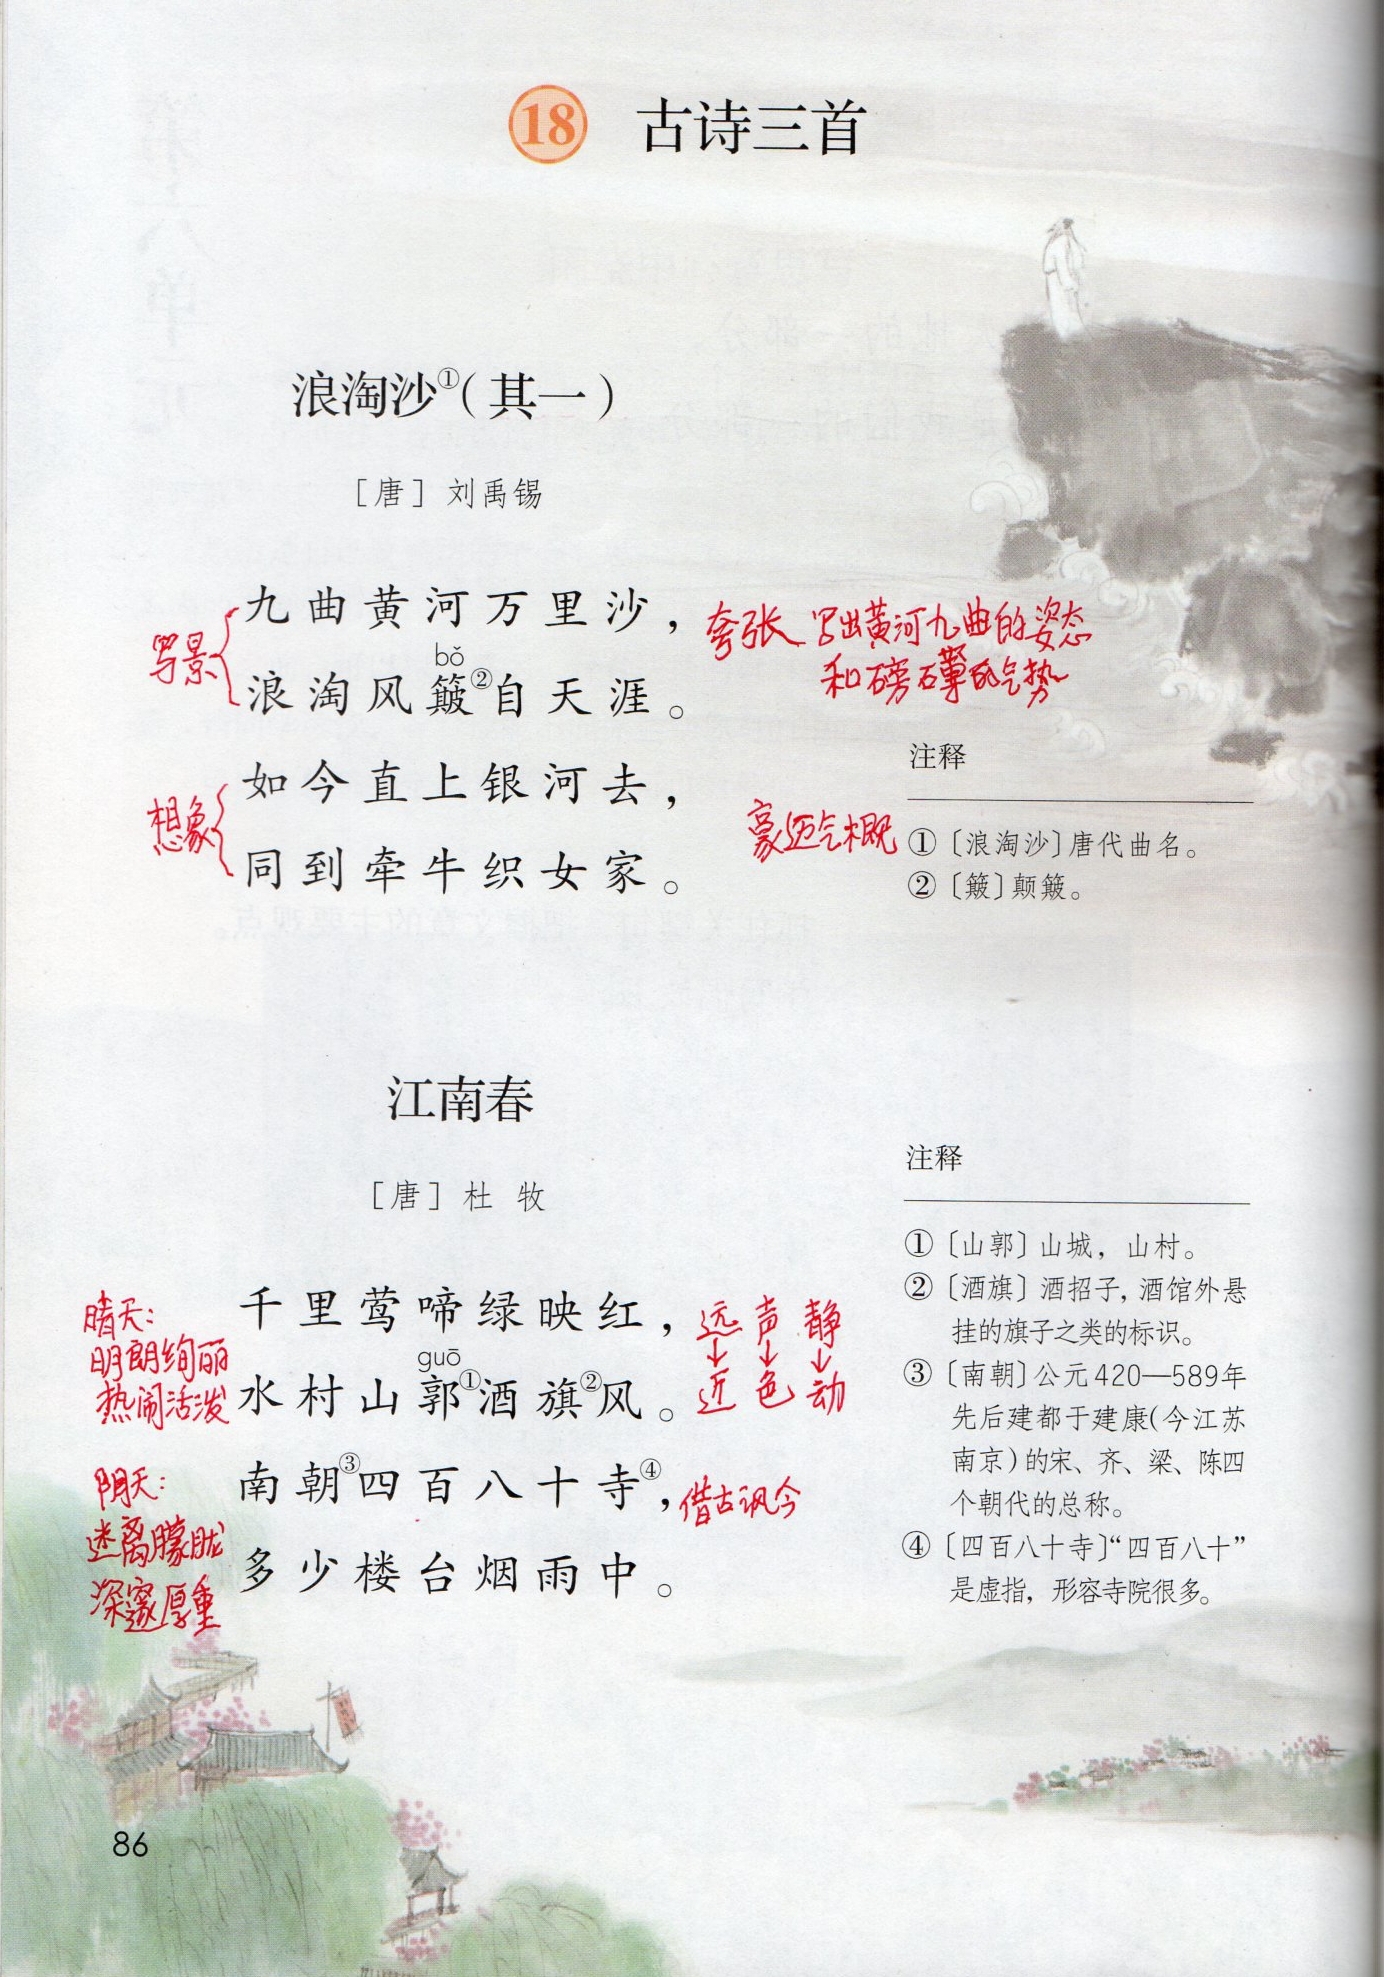 18 古诗三首
浪淘沙①（其一）
［唐］刘禹锡
九曲黄河万里沙，
bǒ
浪淘风簸②自天涯。
如今直上银河去，
同到牵牛织女家。
写景
想象
夸张 写出黄河九曲的姿态
和磅礴的气势
豪迈气概
注释
①〔浪淘沙〕唐代曲名。
②〔簸〕颠簸。
江南春
［唐］杜 牧
千里莺啼绿映红，
guō
水村山郭①酒旗②风。
南朝③四百八十寺④，
多少楼台烟雨中。
晴天：
明朗绚丽
热闹活泼
阴天：
迷离朦胧
深邃厚重
远 声 静
↓ ↓ ↓
近 色 动
借古讽今
注释
①〔山郭〕山城，山村。
②〔酒旗〕酒招子，酒馆外悬
挂的旗子之类的标识。
③〔南朝〕公元420—589年
先后建都于建康（今江苏
南京）的宋、齐、梁、陈四
个朝代的总称。
④〔四百八十寺〕“四百八十”
是虚指，形容寺院很多。
86